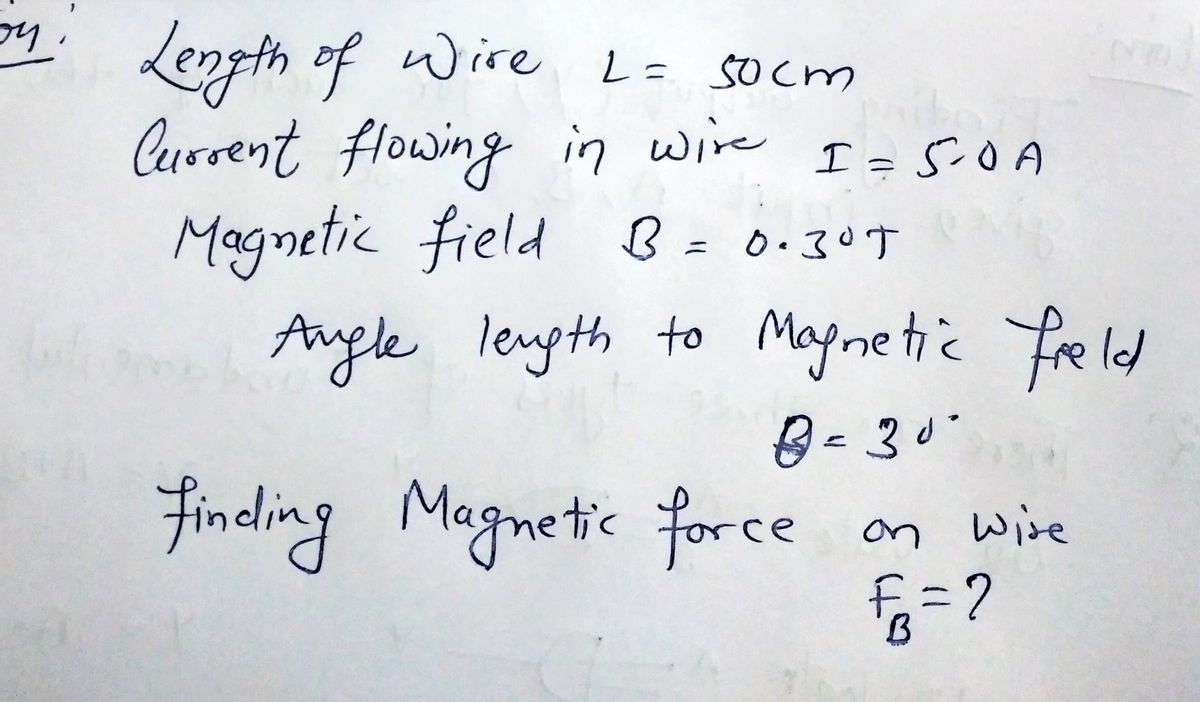 Length of Wire L = 50cm
Current flowing in wire I = 5.0 A
Magnetic field B = 0.30T
Angle length to Magnetic field
θ = 30°
finding Magnetic force on wire
F_B = ?